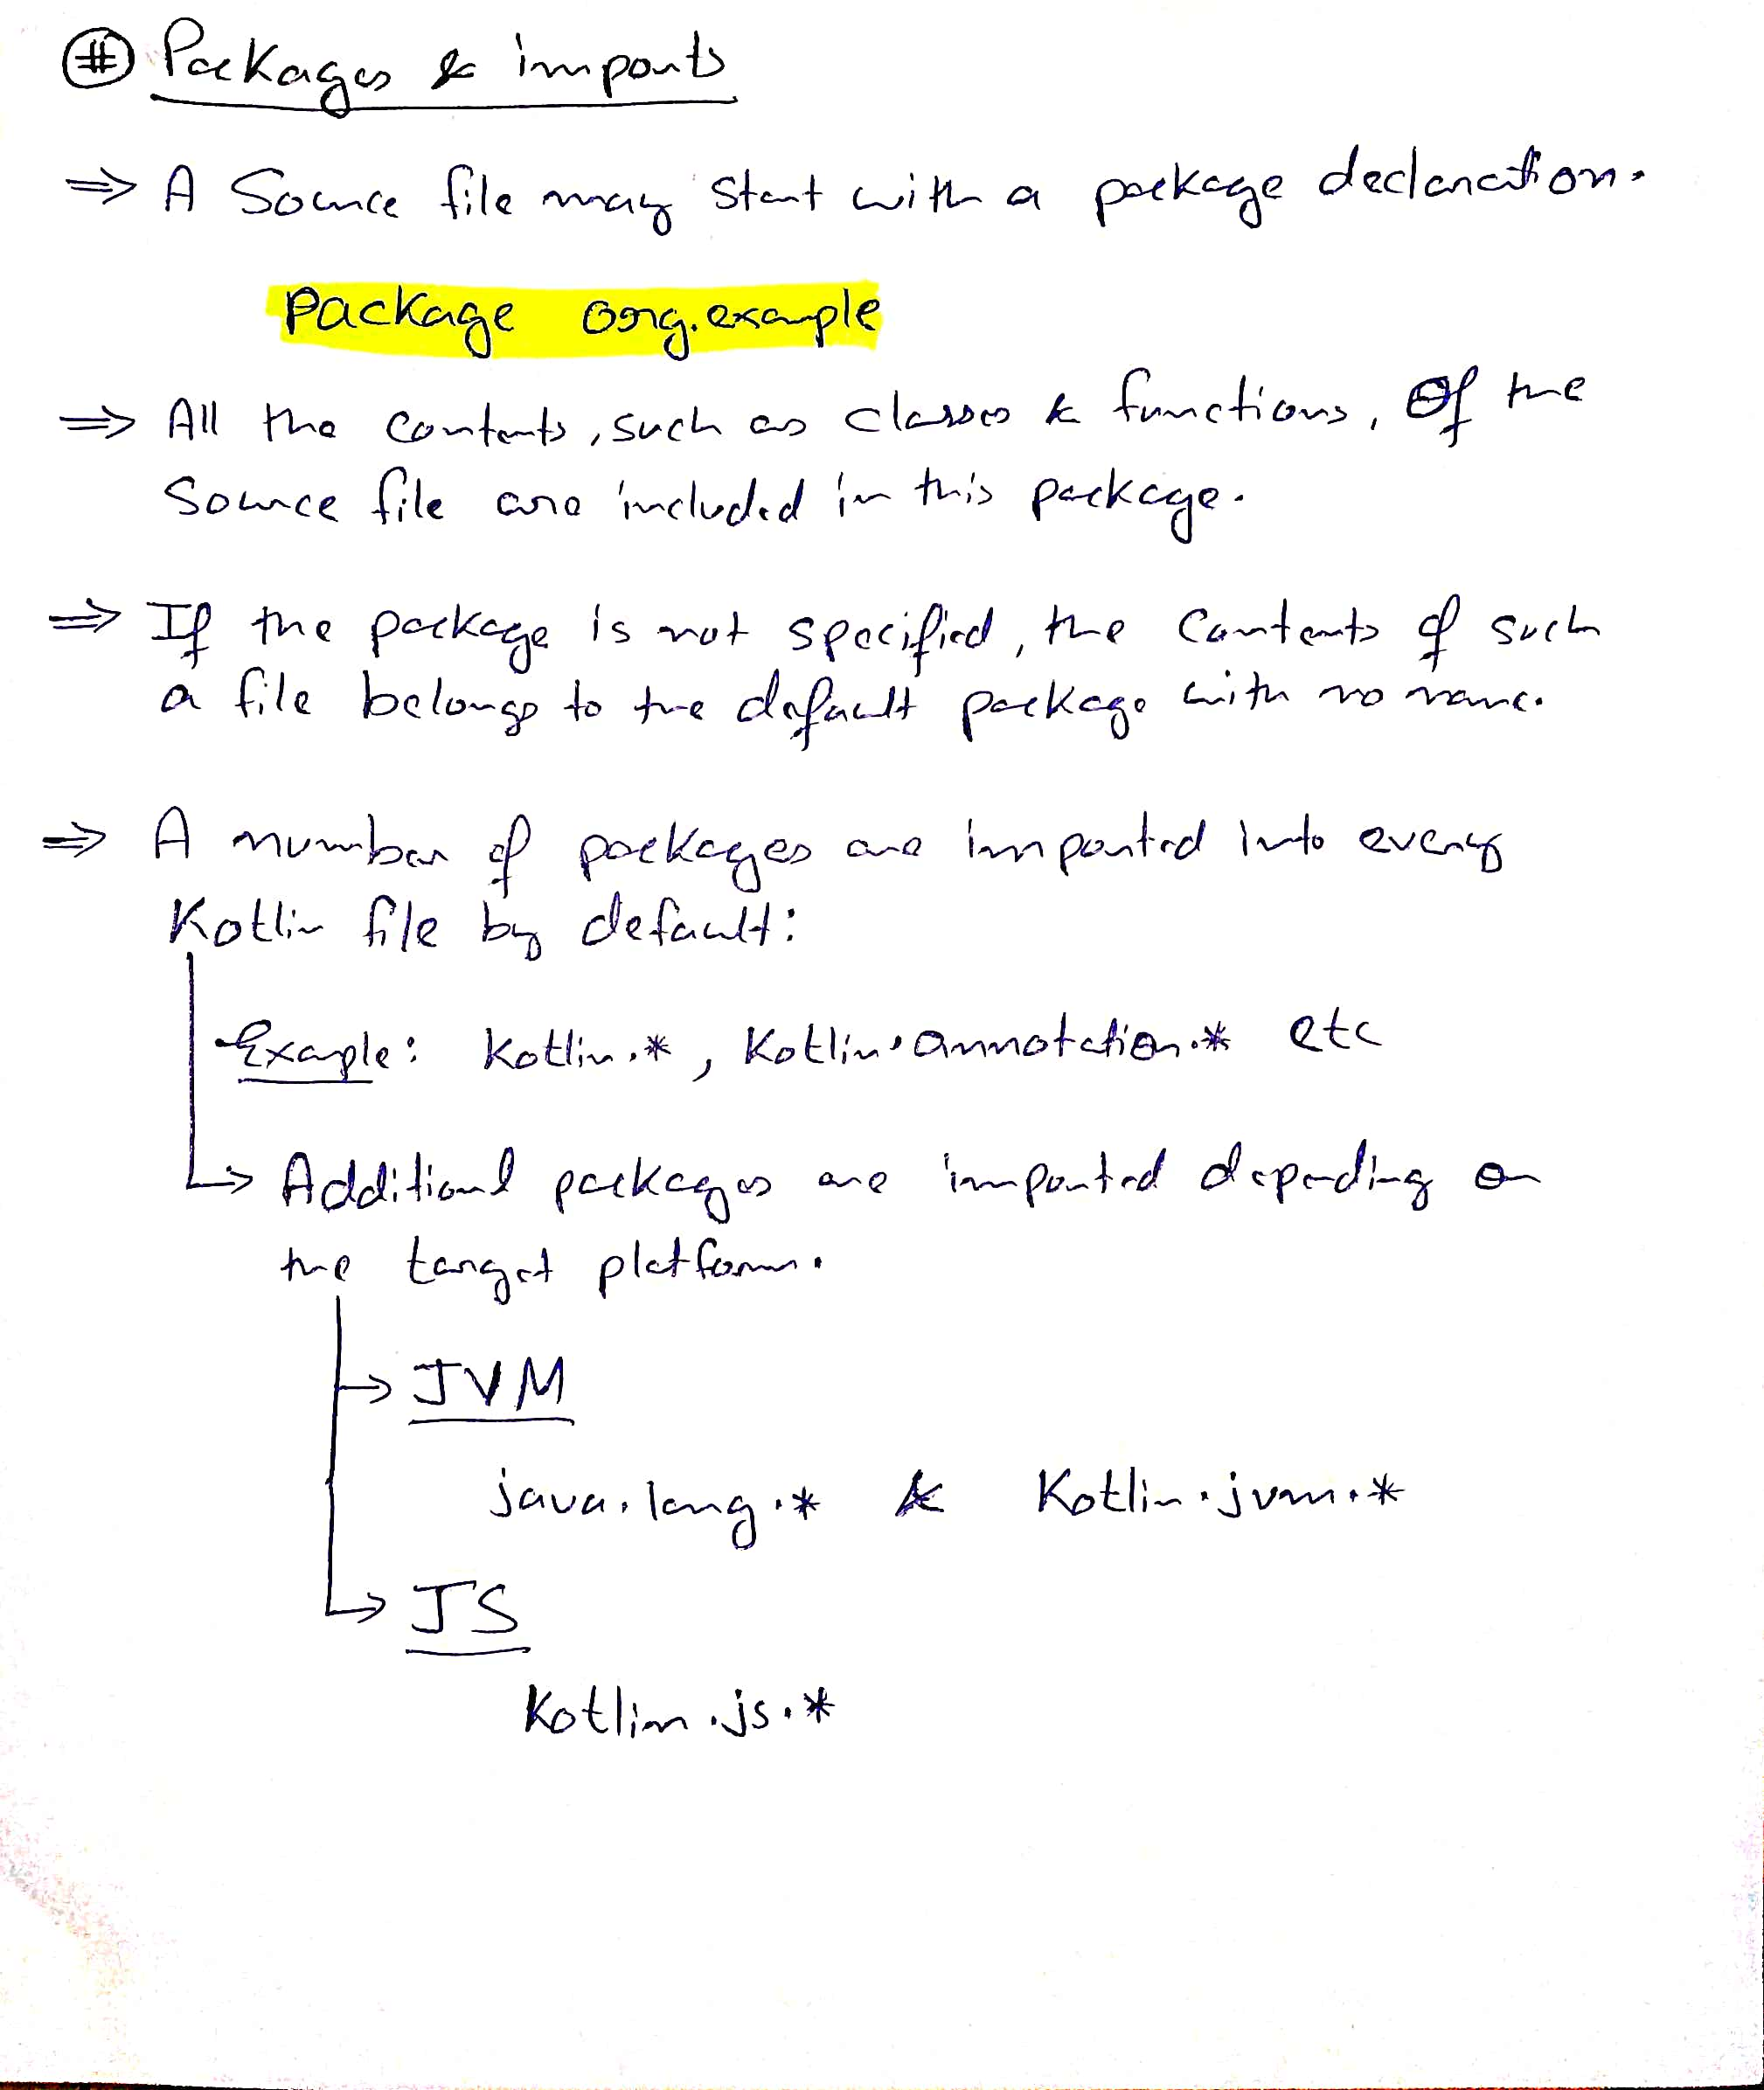 # Packages & imports
⇒ A Source file may start with a package declaration.
package org.example
⇒ All the contents, such as classes & functions, Of the
Source file are included in this package.
⇒ If the package is not specified, the contents of such
a file belongs to the default package with no name.
⇒ A number of packages are imported into every
Kotlin file by default:
Example: Kotlin.*, Kotlin.annotation.* etc
↳ Additional packages are imported depending on
the target platform.
→ JVM
java.lang.* & Kotlin.jvm.*
↳ JS
Kotlin.js.*